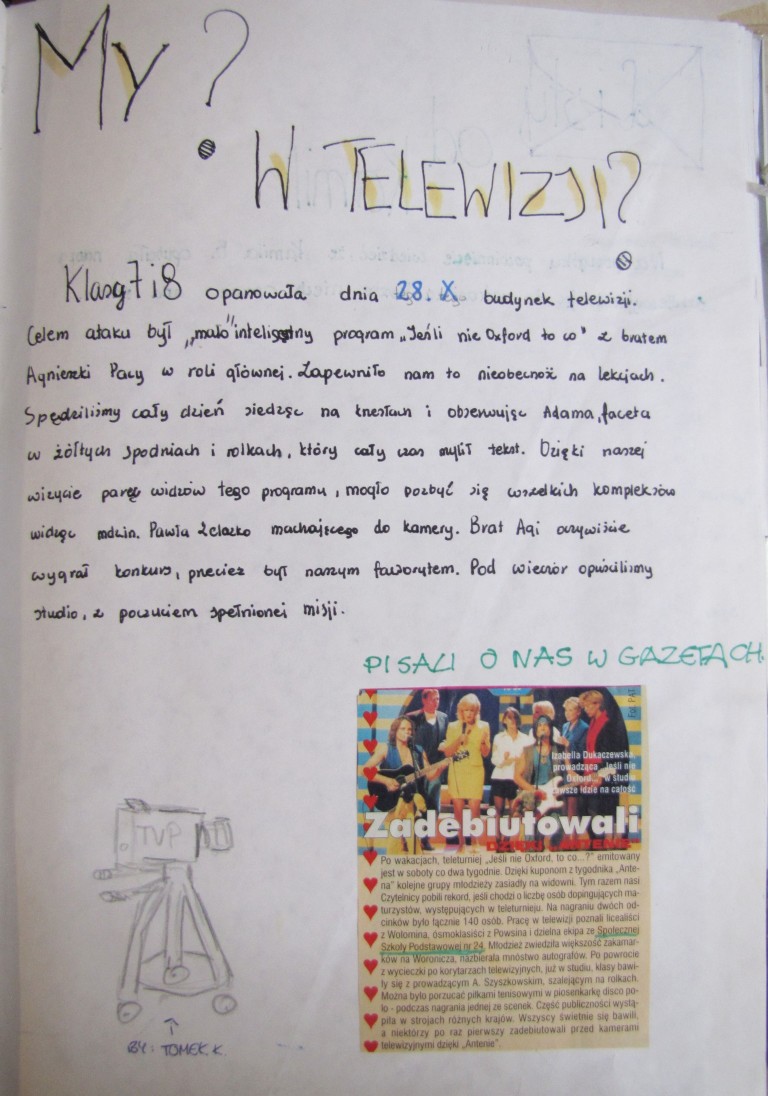 MY?
W TELEWIZJI?
Klasa 7 i 8 opanowała dnia 28. X budynek telewizji.
Celem ataku był „mało" inteligentny program „Jeśli nie Oxford to co" z bratem
Agnieszki Pacy w roli głównej. Zapewniło nam to nieobecność na lekcjach.
Spędziliśmy cały dzień siedząc na krzesłach i obserwując Adama, faceta
w żółtych spodniach i rolkach, który cały czas mylił tekst. Dzięki naszej
wizycie parę widzów tego programu, mogło pozbyć się wszelkich kompleksów
widząc m.in. Pawła Żelazko machającego do kamery. Brat Agi oczywiście
wygrał konkurs, przecież był naszym faworytem. Pod wieczór opuściliśmy
studio, z poczuciem spełnionej misji.
PISALI O NAS W GAZETACH.
Fot. PAT
Izabella Dukaczewska,
prowadząca „Jeśli nie
Oxford..." w studiu
zawsze idzie na całość
Zadebiutowali
DZIĘKI „ANTENIE"
Po wakacjach, teleturniej „Jeśli nie Oxford, to co...?" emitowany
jest w soboty co dwa tygodnie. Dzięki kuponom z tygodnika „Ante-
na" kolejne grupy młodzieży zasiadły na widowni. Tym razem nasi
Czytelnicy pobili rekord, jeśli chodzi o liczbę osób dopingujących ma-
turzystów, występujących w teleturnieju. Na nagraniu dwóch od-
cinków było łącznie 140 osób. Pracę w telewizji poznali licealiści
z Wołomina, ósmoklasiści z Powsina i dzielna ekipa ze Społecznej
Szkoły Podstawowej nr 24. Młodzież zwiedziła większość zakamar-
ków na Woronicza, nazbierała mnóstwo autografów. Po powrocie
z wycieczki po korytarzach telewizyjnych, już w studiu, klasy bawi-
ły się z prowadzącym A. Szyszkowskim, szalejącym na rolkach.
Można było porzucać piłkami tenisowymi w piosenkarkę disco po-
lo - podczas nagrania jednej ze scenek. Część publiczności wystą-
piła w strojach różnych krajów. Wszyscy świetnie się bawili,
a niektórzy po raz pierwszy zadebiutowali przed kamerami
telewizyjnymi dzięki „Antenie".
TVP
BY: TOMEK K.